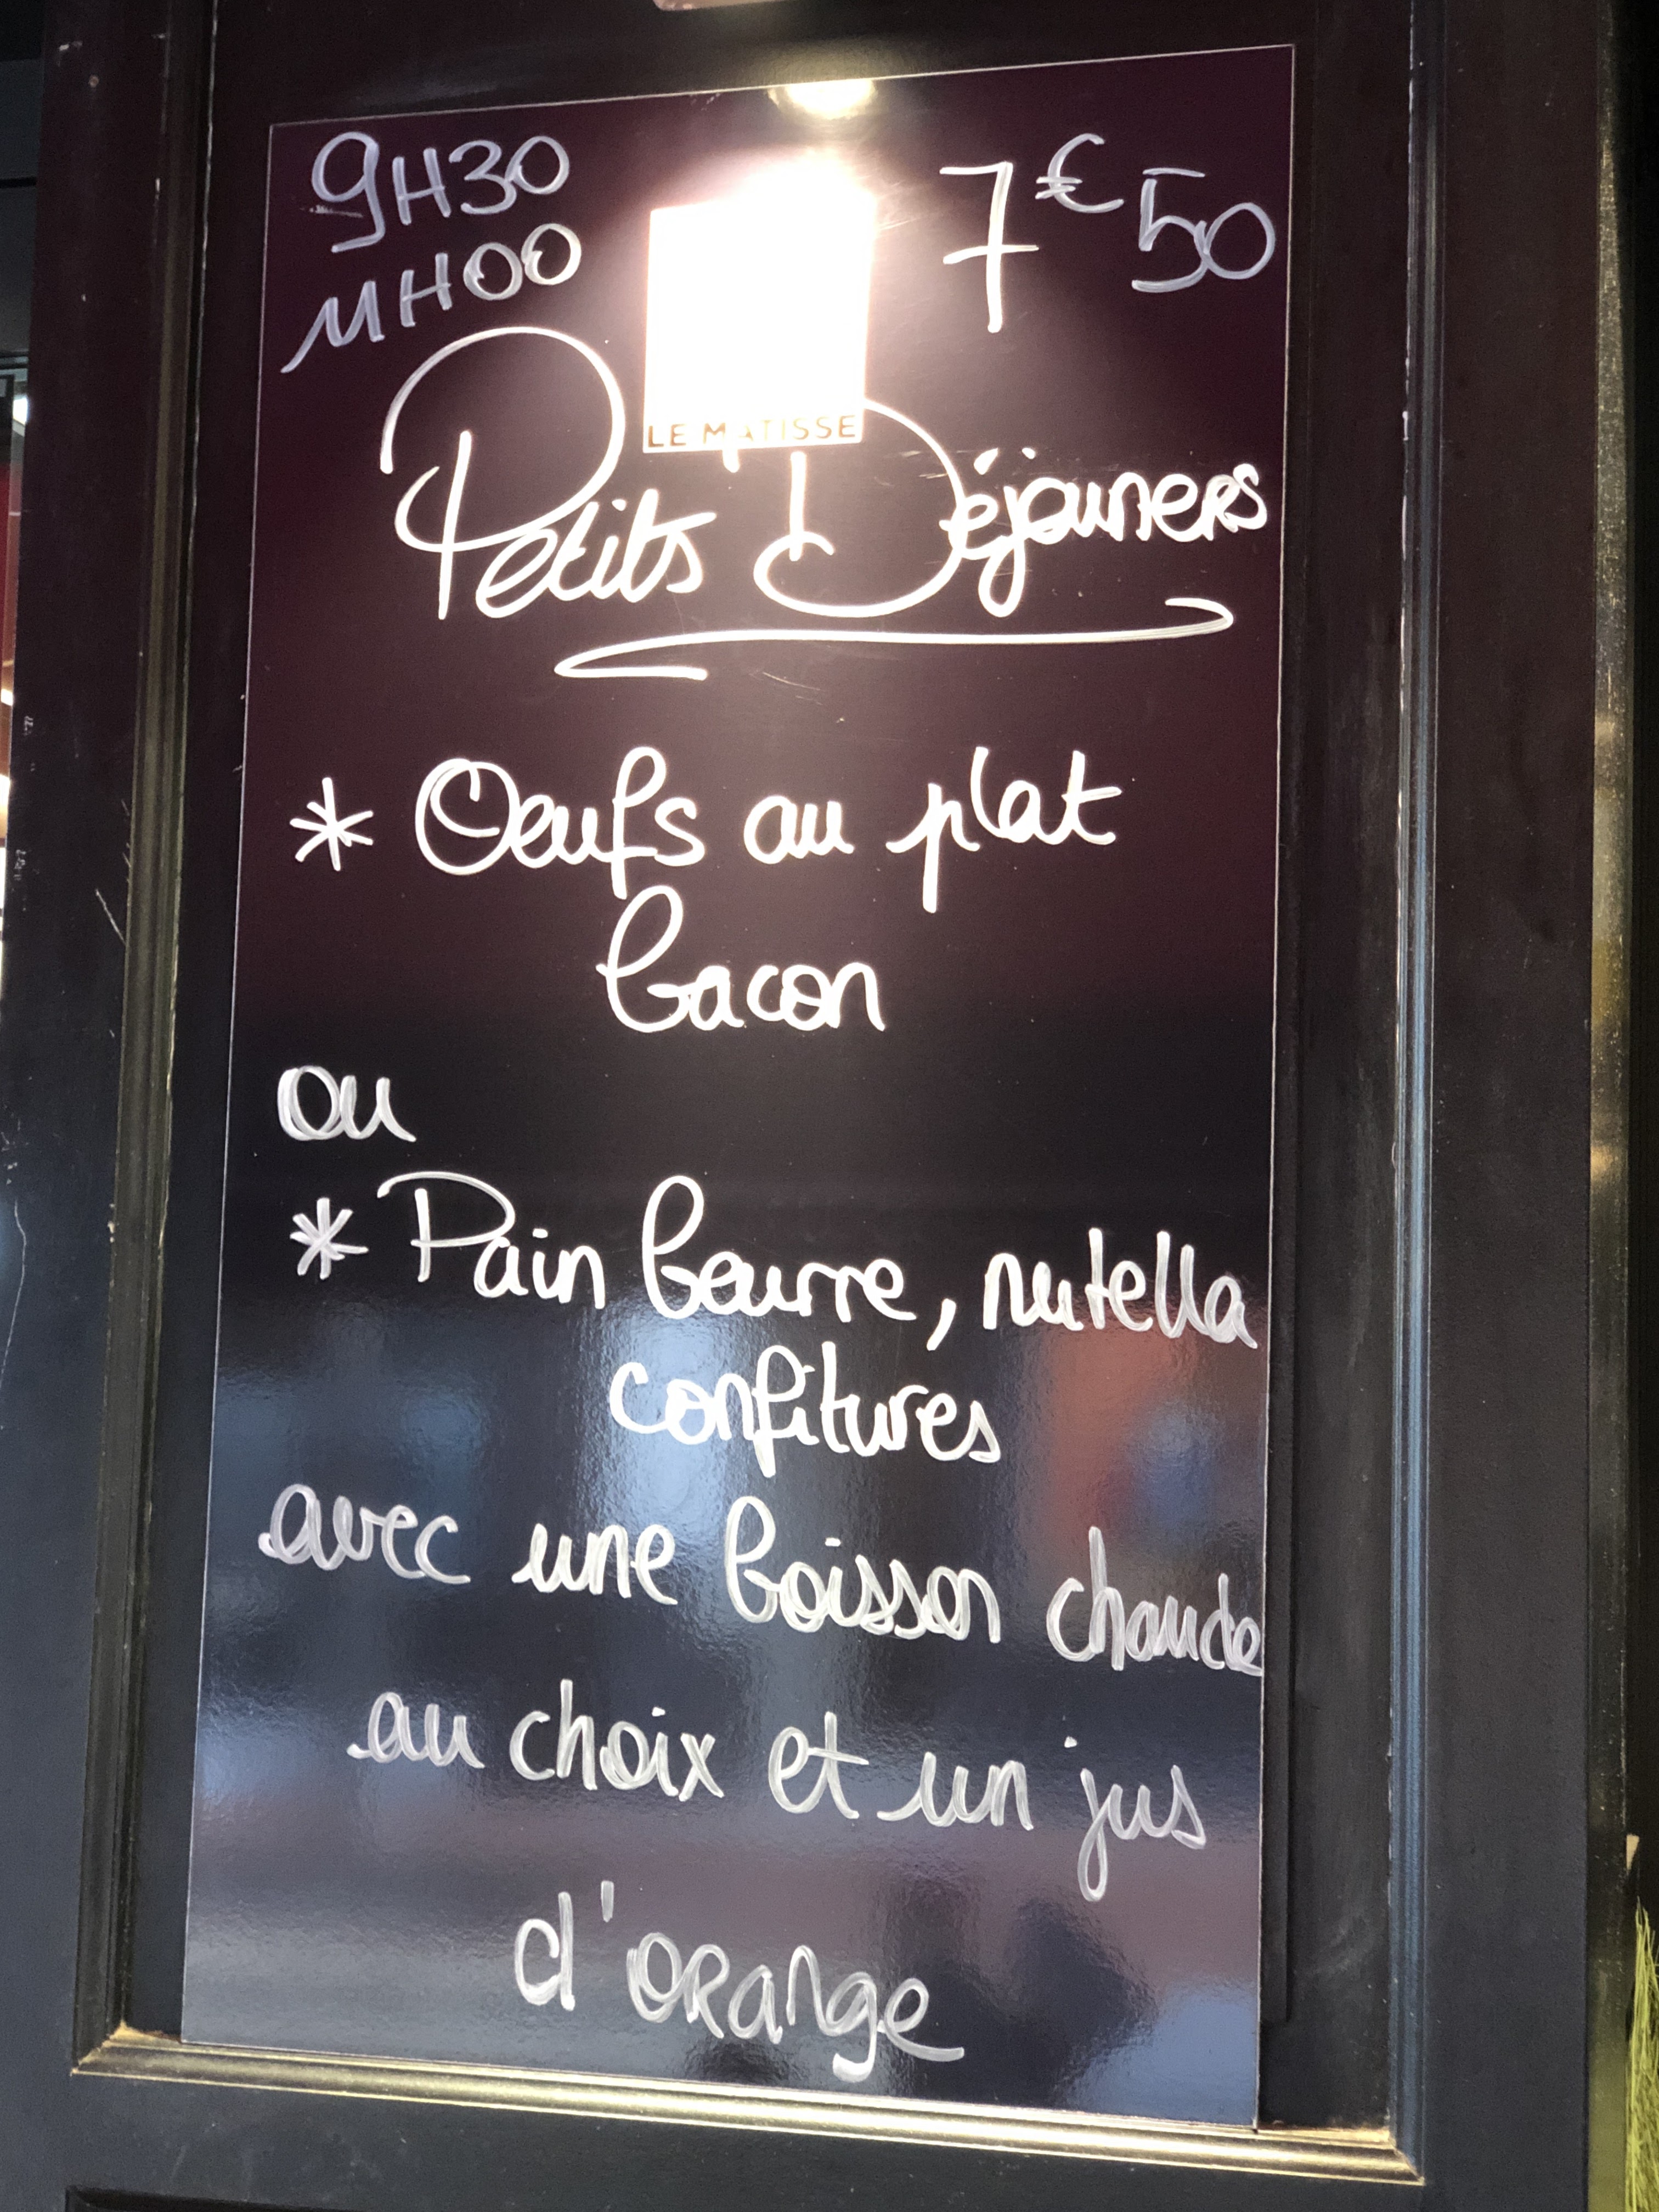 9H30
11H00
7€50
LE MATISSE
Petits Déjeuners
* Oeufs au plat
bacon
ou
* Pain beurre, nutella
confitures
avec une boisson chaude
au choix et un jus
d'orange